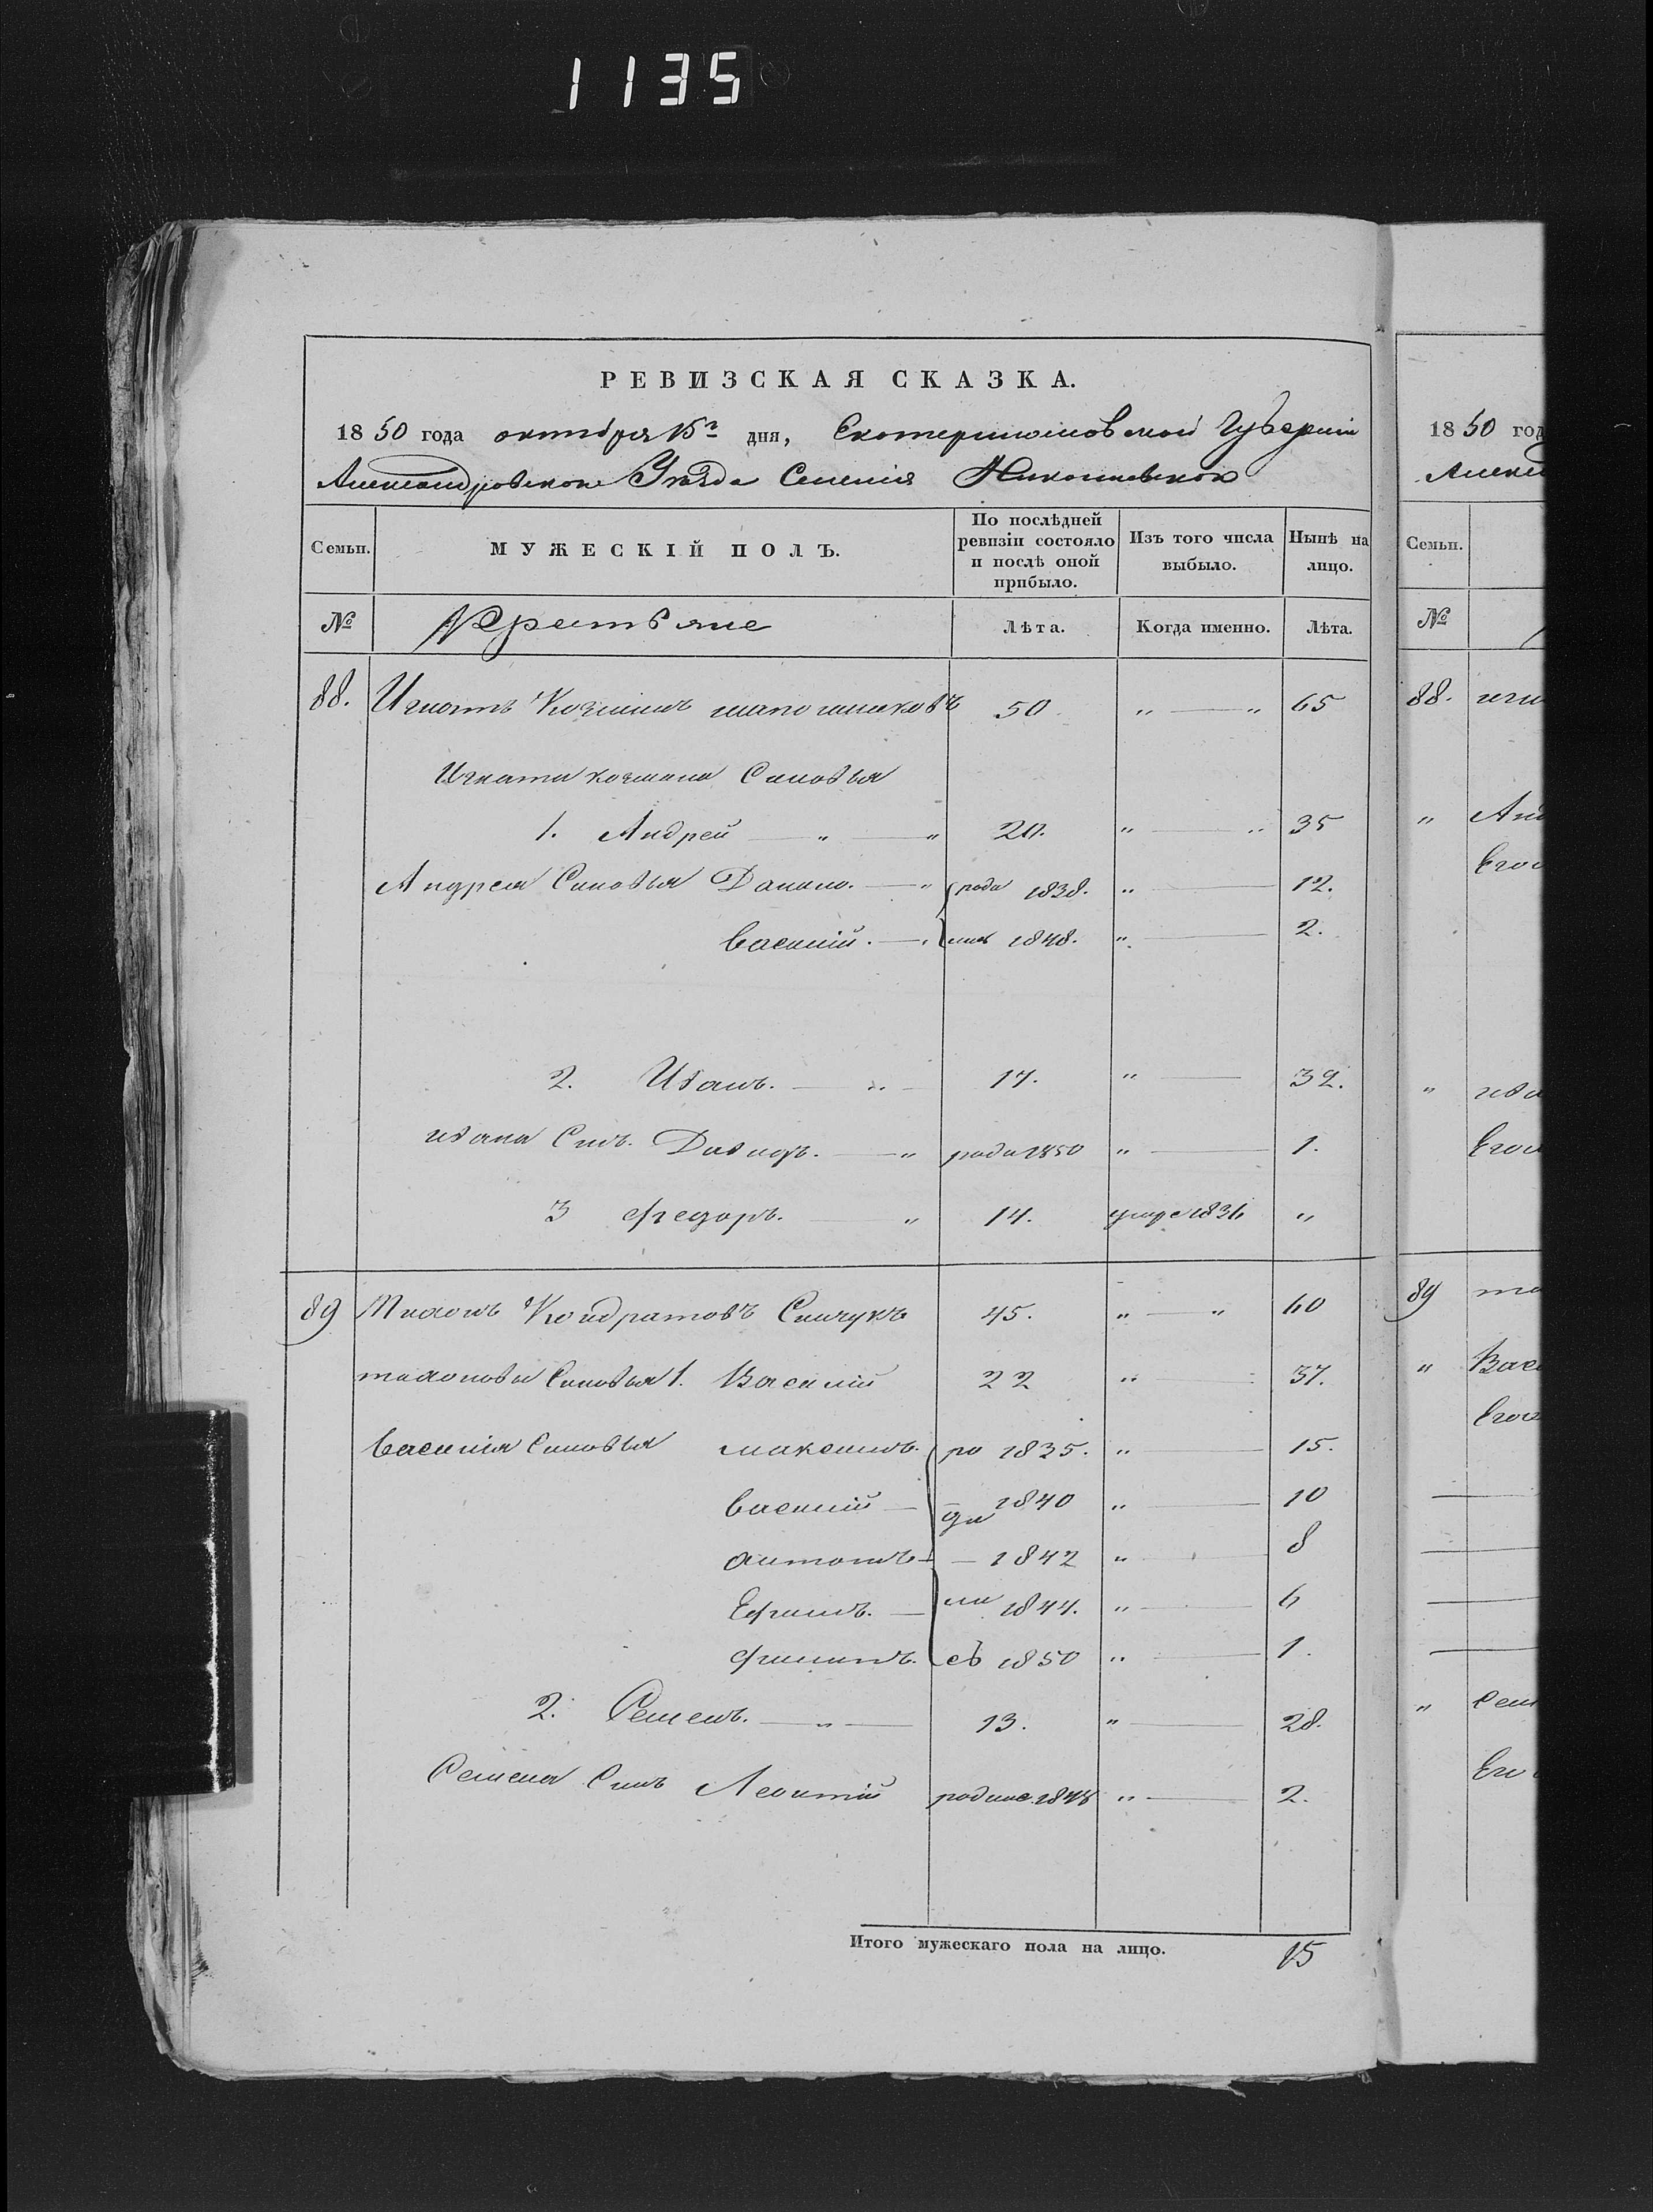 1135
РЕВИЗСКАЯ СКАЗКА.
1850 года октября 15го дня, Екатеринославской Губернии
Александровскаго Уѣзда Селения Николаевского
Семьи. МУЖЕСКІЙ ПОЛЪ. По послѣдней ревизіи состояло и послѣ оной прибыло. Изъ того числа выбыло. Нынѣ на лицо.
№ Крестьяне Лѣта. Когда именно. Лѣта.
88. Игнатъ Козминъ 50 „ — „ 65
Игната козмина Синовья
1. Андрей — „ — „ 20. „ — „ 35
Андрея Синовья Данило. — „ роди 1838. „ — 12.
василий. — лись 1848. „ — 2.
2. Иванъ. — „ — 17. „ — 32.
ивана Синъ. Давидъ. — „ роди 1850 „ — 1.
3 федоръ. — „ 14. умре 1836 „
89 Тихонъ Кондратовъ Синчукъ 45. „ — „ 60
тихоновы Синовья 1. Василий 22 „ — 37.
василия Синовья максимъ. ро 1835. „ — 15.
василий — ди 1840 „ — 10
антонъ — 1842 „ — 8
Ефимъ. — ли 1844. „ — 6
филипъ. сь 1850 „ — 1.
2. Семенъ. — „ — 13. „ — 28.
Семена Синъ Леонтий родился 1848 „ — 2.
Итого мужескаго пола на лицо. 15
1850 год
Алекс
Семьи.
№
88. игн
„ Анд
Его
„ ива
Его
89 ти
„ Васи
Его
„ Сем
Его